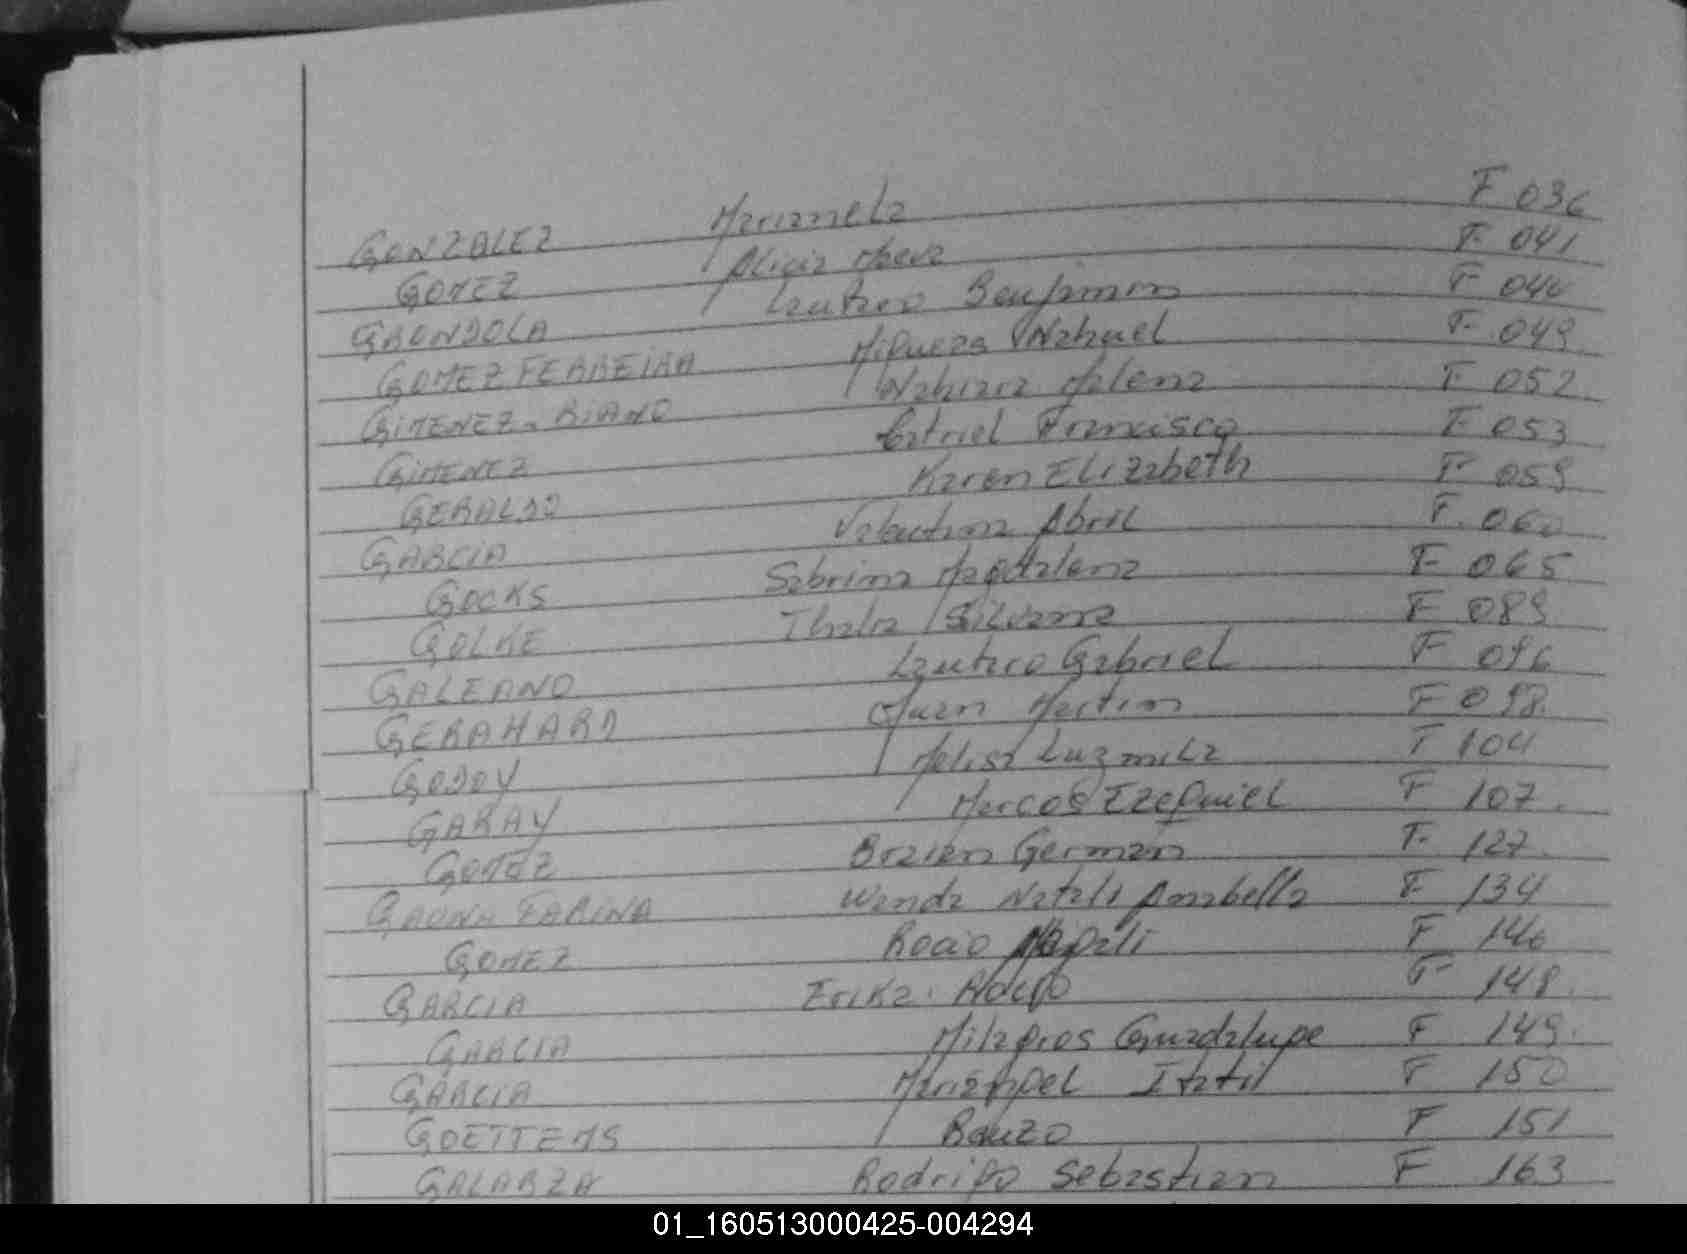 GONZALEZ Marianela F 036
GOMEZ Alicia Mara F. 041
GAONDOLA Lautaro Benjamin F 046
GOMEZ FERREIRA Migueas Nahuel F. 049
GIMENEZ RIANO Nahiara Malena F 052
GIMENEZ Gatriel Francisco F 053
GERALDO Karen Elizabeth F 059
GARCIA Valentina Abril F. 060
GOCKS Sabrina Magdalena F 065
GOLKE Thalia Silvana F 089
GALEANO Lautaro Gabriel F 096
GERAHARD Juan Martin F 098
GODOY Melisa Luzmila F 104
GARAY Marcos Ezequiel F 107.
GOMEZ Braian German F. 127.
GAONA FARINA Wanda Natali Anabella F 134
GOMEZ Rocio Magali F 146
GARCIA Erika Rocio F 148.
GARCIA Milagros Guadalupe F 149.
GARCIA Mariangel Itati F 150
GOETTEMS Bauzo F 151
GALARZA Rodrigo Sebastian F 163
01_160513000425-004294